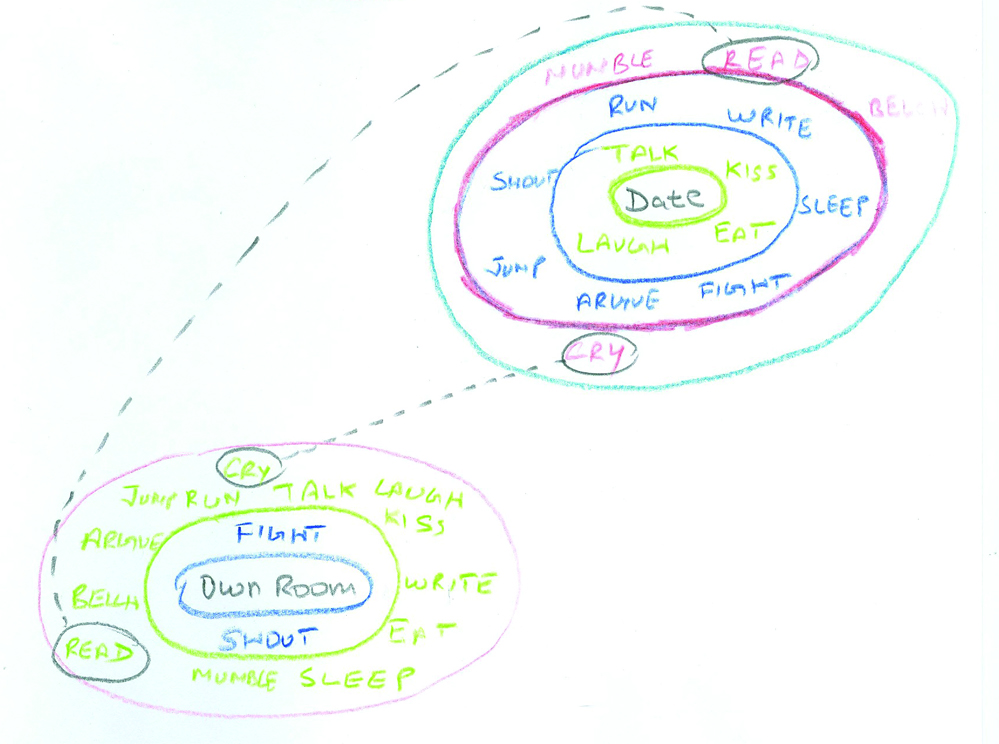 MUMBLE READ BELCH
RUN WRITE
TALK KISS
SHOUT Date SLEEP
LAUGH EAT
JUMP ARGUE FIGHT
CRY
CRY
JUMP RUN TALK LAUGH
KISS
ARGUE FIGHT
BELCH Own Room WRITE
READ SHOUT EAT
MUMBLE SLEEP